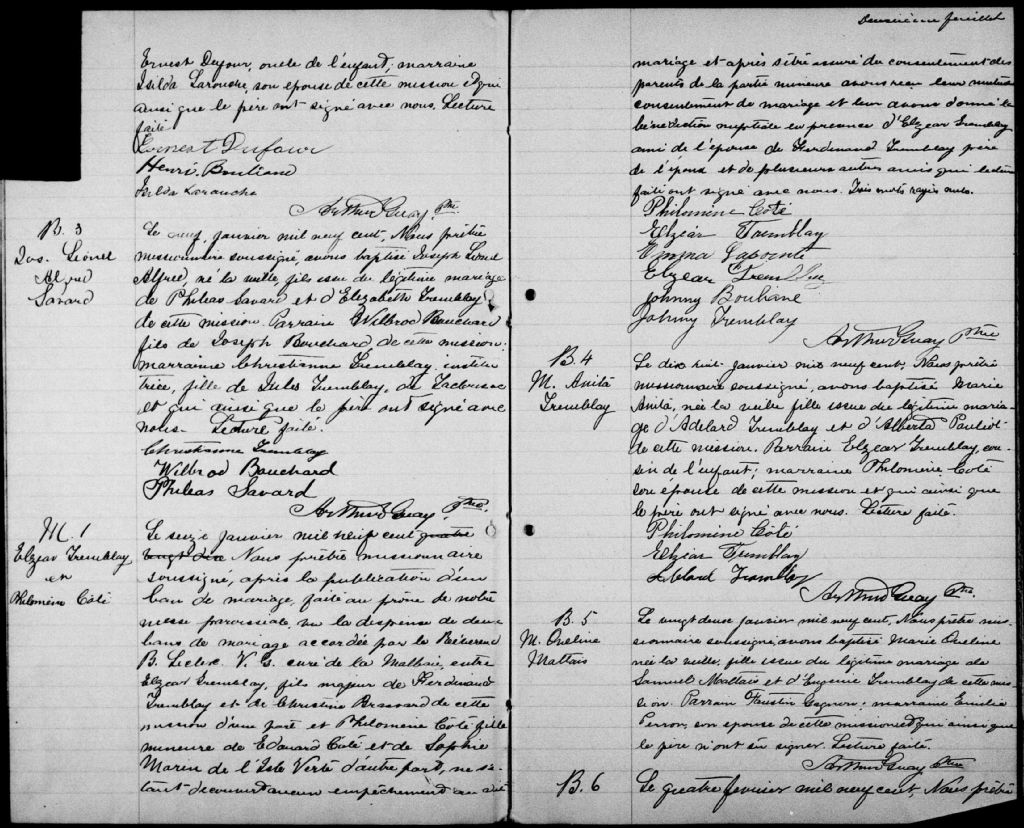 Deuxième feuillet
Ernest Dufour, oncle de l'enfant; marraine
Isilda Larouche, son épouse de cette mission et qui
ainsi que le père ont signé avec nous. Lecture
faite
Ernest Dufour
Henri Bouliane
Isilda Larouche
Arthur Guay Ptre
B. 3
Jos. Lionel
Alfred
Savard
Le neuf, janvier mil neuf cent, Nous prêtre
missionnaire soussigné, avons baptisé Joseph Lionel
Alfred, né la veille, fils issu du légitime mariage
de Phileas Savard et d'Elizabeth Tremblay
de cette mission. Parrain Wilbrod Bouchard
fils de Joseph Bouchard de cette mission;
marrainne Christienne Tremblay, institu
trice, fille de Jules Tremblay, de
et qui ainsi que le père ont signé avec
nous. Lecture faite.
Christianne Tremblay
Wilbrod Bouchard
Phileas Savard
Arthur Guay Ptre.
M. 1
Elzear Tremblay
et
Philomène Côté
Le seize janvier mil neuf cent quatre
vingt dix Nous prêtre missionnaire
soussigné, après la publication d'un
ban de mariage, faite au prône de notre
messe paroissiale, vu la dispense de deux
bans de mariage accordée par le Révérend
B. Leclerc V. G. curé de la Malbaie, entre
Elzear Tremblay, fils majeur de Ferdinand
Tremblay et de Christine Brassard de cette
mission d'une part et Philomène Côté fille
mineure de Edouard Côté et de Sophie
Marin de l'Isle Verte d'autre part, ne s'é
tant découvert aucun empêchement au dit
mariage et après s'être assuré du consentement des
parents de la partie mineure avons reçu leur mutuel
consentement de mariage et leur avons donné la
bénédiction nuptiale en présence d'Elzear Tremblay
ami de l'épouse de Ferdinand Tremblay père
de l'époux et de plusieurs autres amis qui lecture
faite ont signé avec nous. Trois mots rayés nuls.
Philomène Côté
Elzéar Tremblay
Emma Lapointe
Elzear Tremblay
Johnny Bouliane
Johnny Tremblay
Arthur Guay Ptre
B. 4
M. Anita
Tremblay
Le dix huit janvier mil neuf cent, Nous prêtre
missionnaire soussigné, avons baptisé Marie
Anita, née la veille fille issue du légitime maria-
ge d'Adelard Tremblay et d'Alberta Pauliot
de cette mission. Parrain Elzear Tremblay, cou-
sin de l'enfant; marraine Philomène Côté
son épouse de cette mission et qui ainsi que
le père ont signé avec nous. Lecture faite.
Philomène Côté
Elzéar Tremblay
Adelard Tremblay
Arthur Guay Ptre.
B. 5
M. Oveline
Maltais
Le vingt deux janvier mil neuf cent, Nous prêtre mis-
sionnaire soussigné, avons baptisé Marie Oveline
née la veille, fille issue du légitime mariage de
Samuel Maltais et d'Eugenie Tremblay de cette mis-
sion. Parrain Faustin Gagnon; marraine Emilie
Perron, son épouse de cette mission et qui ainsi que
le père n'ont su signer. Lecture faite.
Arthur Guay Ptre
B. 6
Le quatre fevrier mil neuf cent, Nous prêtre